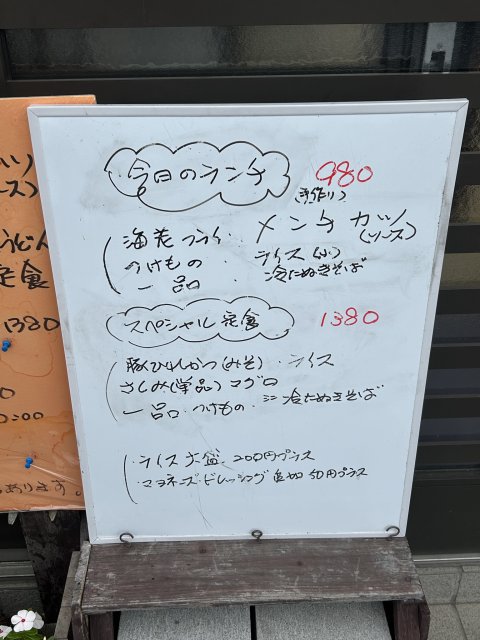 今日のランチ 980
(手作り)
海老フライ・メンチカツ
(ソース)
つけもの・ライス(小)
一品・冷たぬきそば
スペシャル定食 1380
豚ひれかつ(みそ)・ライス
さしみ(単品)マグロ
一品・つけもの・ミニ冷たぬきそば
・ライス大盛 200円プラス
・マヨネーズ・ドレッシング追加 50円プラス
ソース)
うどん
定食
1380
0:00
あります。